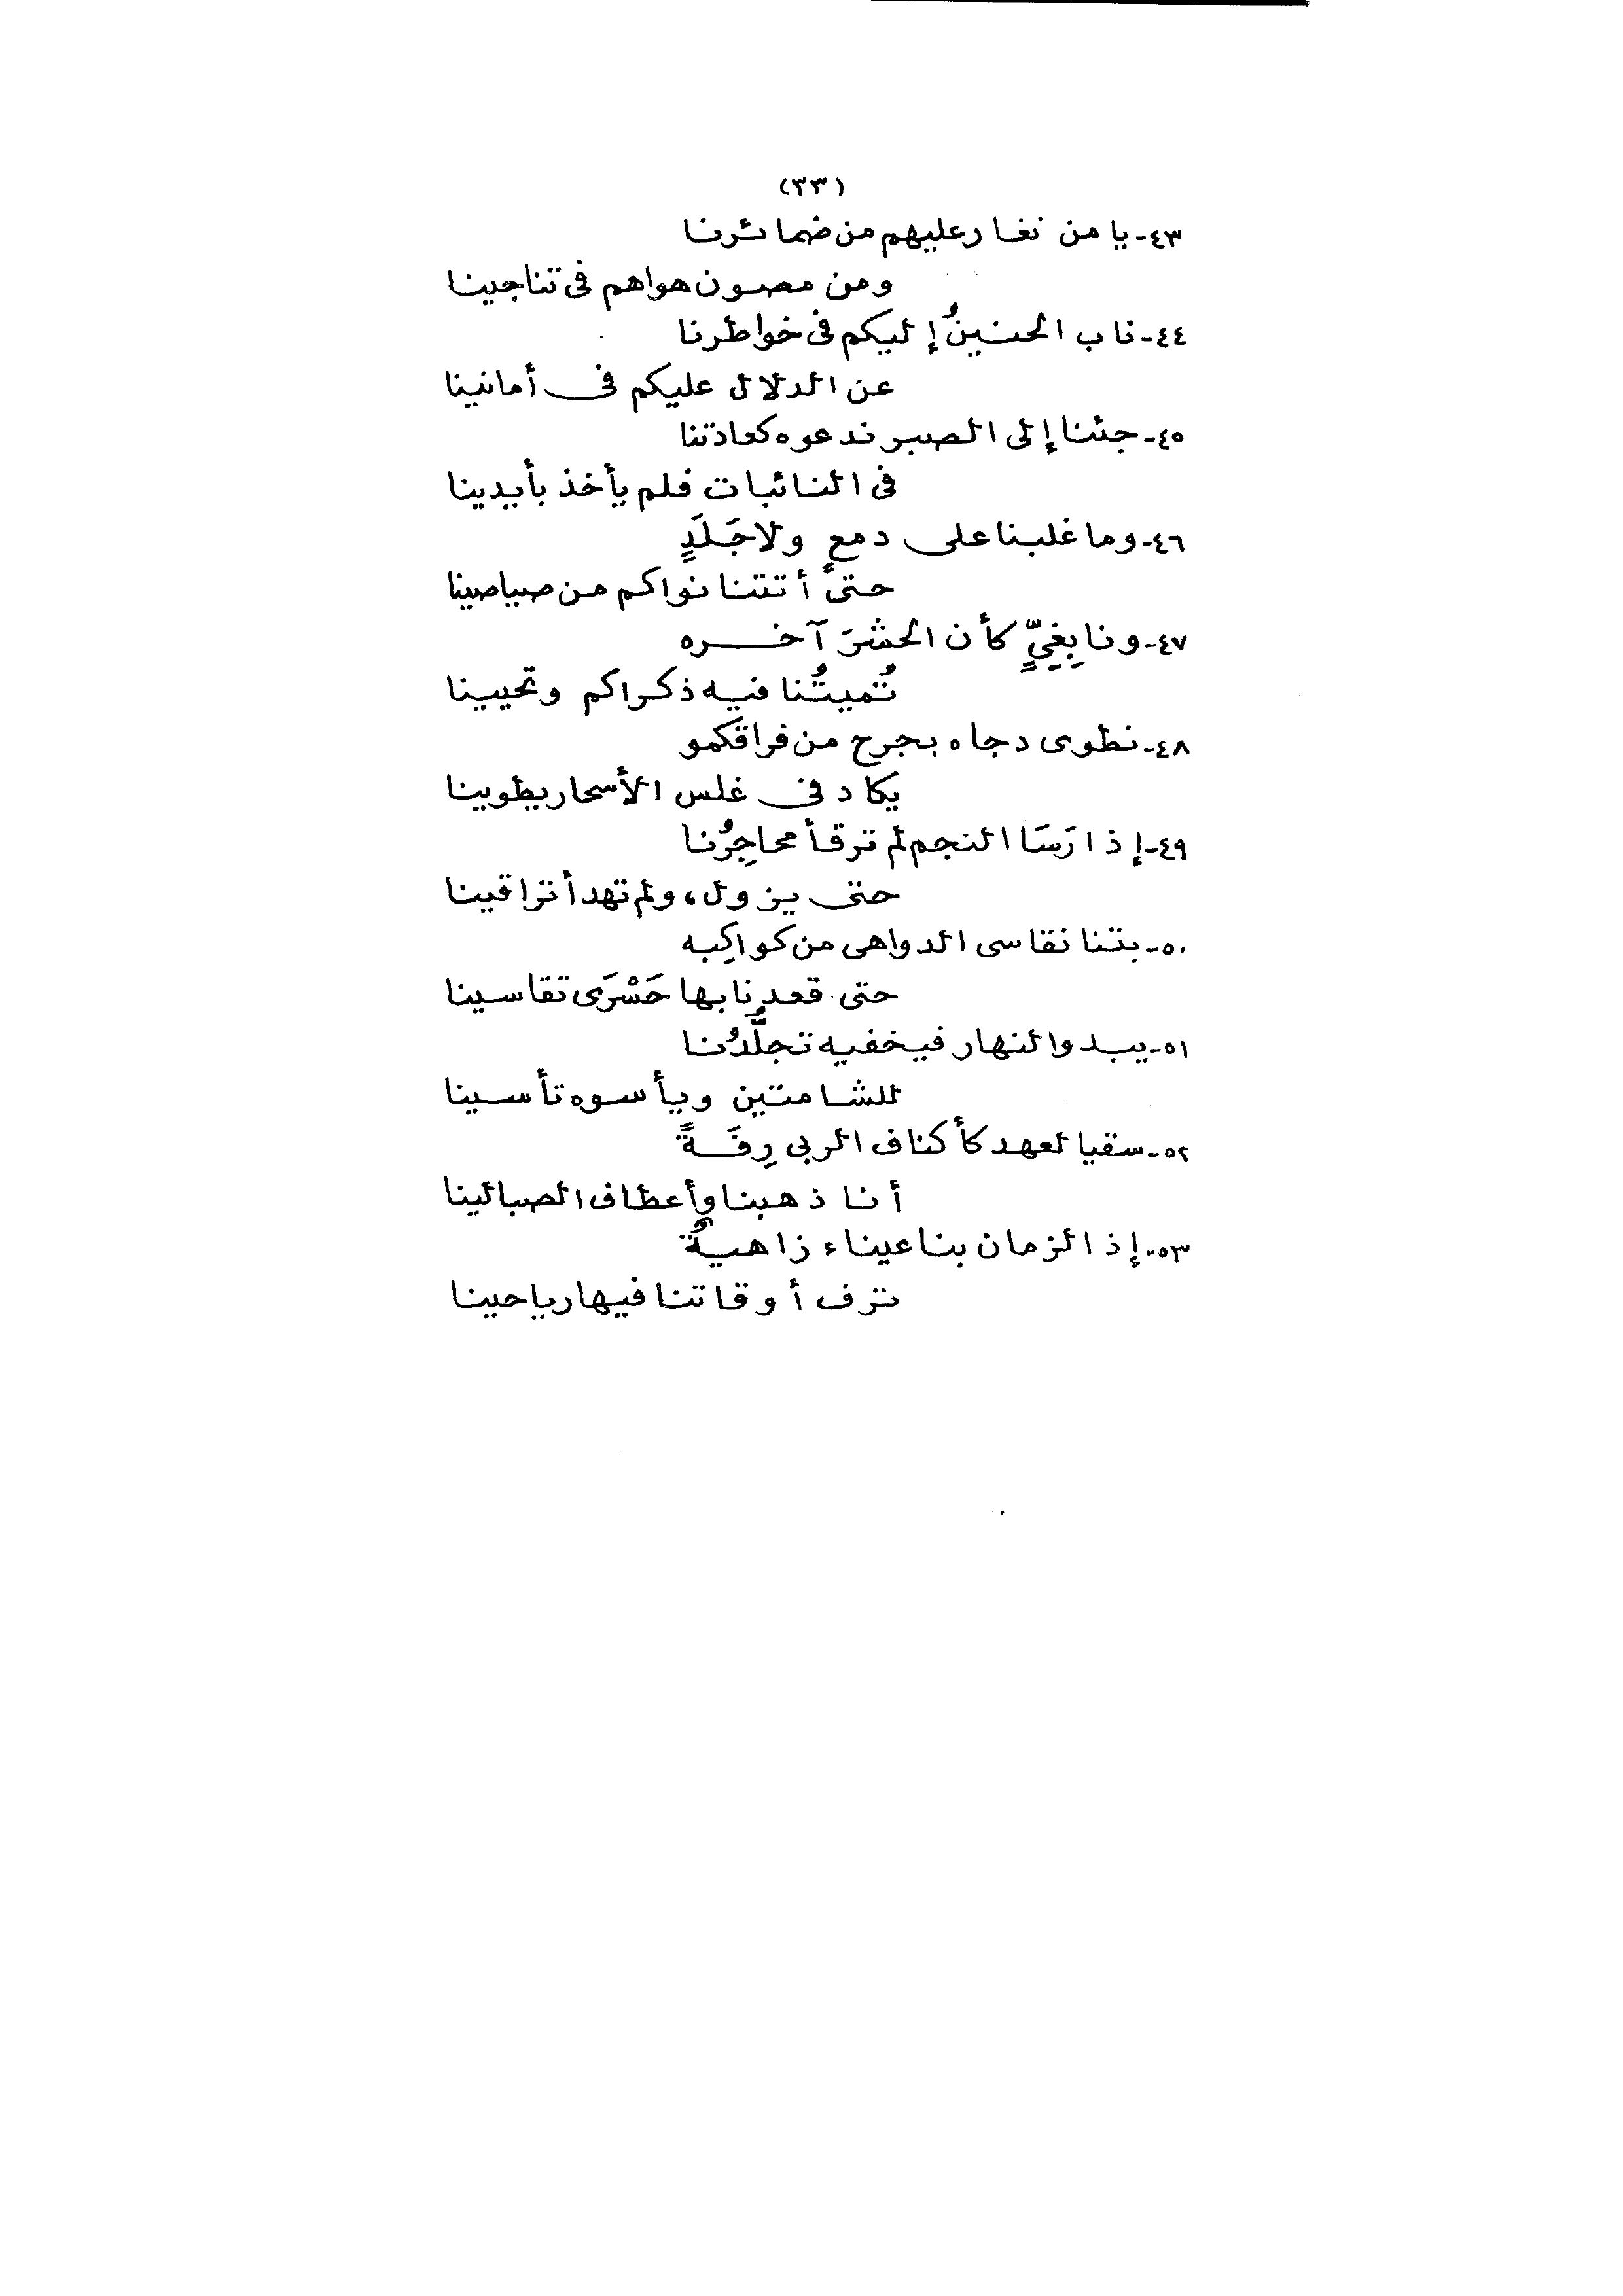 (٣٣)
٤٣- يا من نغار عليهم من ضمائرنا
ومن مصون هواهم فى تناجينا
٤٤- ناب الحنينُ إليكم فى خواطرنا
عن الدلال عليكم فى أمانينا
٤٥- جئنا إلى الصبر ندعوه كعادتنا
فى النائبات فلم يأخذ بأيدينا
٤٦- وما غلبنا على دمعٍ ولا جَلَدٍ
حتى أتتنا نواكم من صياصينا
٤٧- ونابِغِيٍّ كأن الحشرَ آخره
تُميتُنا فيه ذكراكم وتحيينا
٤٨- نطوى دجاه بجرح من فراقكمو
يكاد فى غلس الأسحار يطوينا
٤٩- إذا رَسَا النجم لم ترقأ محاجِرُنا
حتى يزول، ولم تهدأ تراقينا
٥٠- بتنا نقاسى الدواهى من كواكِبه
حتى قعدنا بها حَسْرَى تقاسينا
٥١- يبدو النهار فيخفيه تجلُّدُنا
للشامتين ويأسوه تأسينا
٥٢- سقيا لعهد كأكناف الربى رِفَةً
أنا ذهبنا وأعطاف الصبا لينا
٥٣- إذ الزمان بنا عيناء زاهيةٌ
ترف أوقاتنا فيها رياحينا